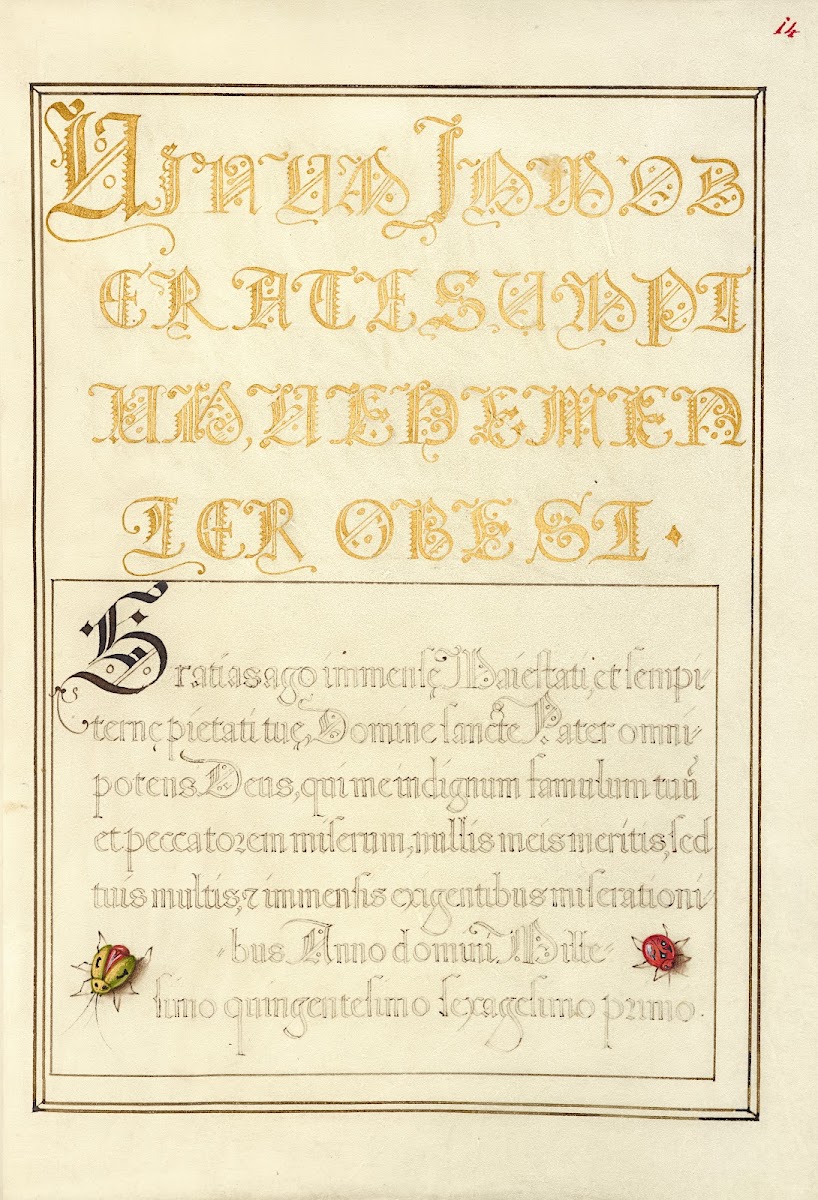 14
UINUM IMMOD
ERATE SUMPT
UM, UEHEMEN
TER OBEST.
Gratias ago immensę Maiestati, et sempi=
ternę pietati tuę, Domine sancte Pater omni=
potens Deus, qui me indignum famulum tuū
et peccatorem miserum, nullis meis meritis, sed
tuis multis, ⁊ immensis exigentibus miserationi=
=bus Anno domini Mille=
simo quingentesimo sexagesimo primo.